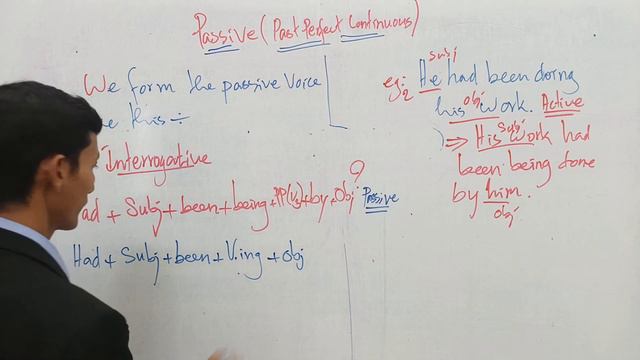 Passive (Past Perfect Continuous)
We form the passive voice
this ÷
Interrogative
ad + Subj + been + being + PP(V3) + by + Obj ? Passive
Had + Subj + been + V.ing + obj
subj
eg: He had been doing
2
obj
his work. Active
Subj
⇒ His work had
been being done
by him.
obj